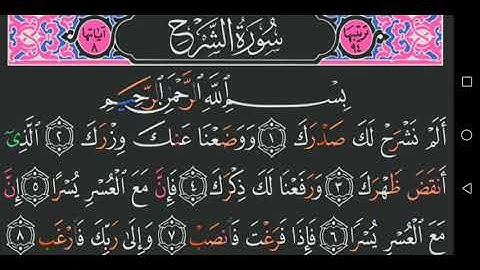 ترتيبها ٩٤ سُورَةُ الشَّرْحِ آياتها ٨
بِسْمِ اللَّهِ الرَّحْمَنِ الرَّحِيمِ
أَلَمْ نَشْرَحْ لَكَ صَدْرَكَ ١ وَوَضَعْنَا عَنكَ وِزْرَكَ ٢ الَّذِى
أَنقَضَ ظَهْرَكَ ٣ وَرَفَعْنَا لَكَ ذِكْرَكَ ٤ فَإِنَّ مَعَ الْعُسْرِ يُسْرًا ٥ إِنَّ
مَعَ الْعُسْرِ يُسْرًا ٦ فَإِذَا فَرَغْتَ فَانصَبْ ٧ وَإِلَى رَبِّكَ فَارْغَب ٨